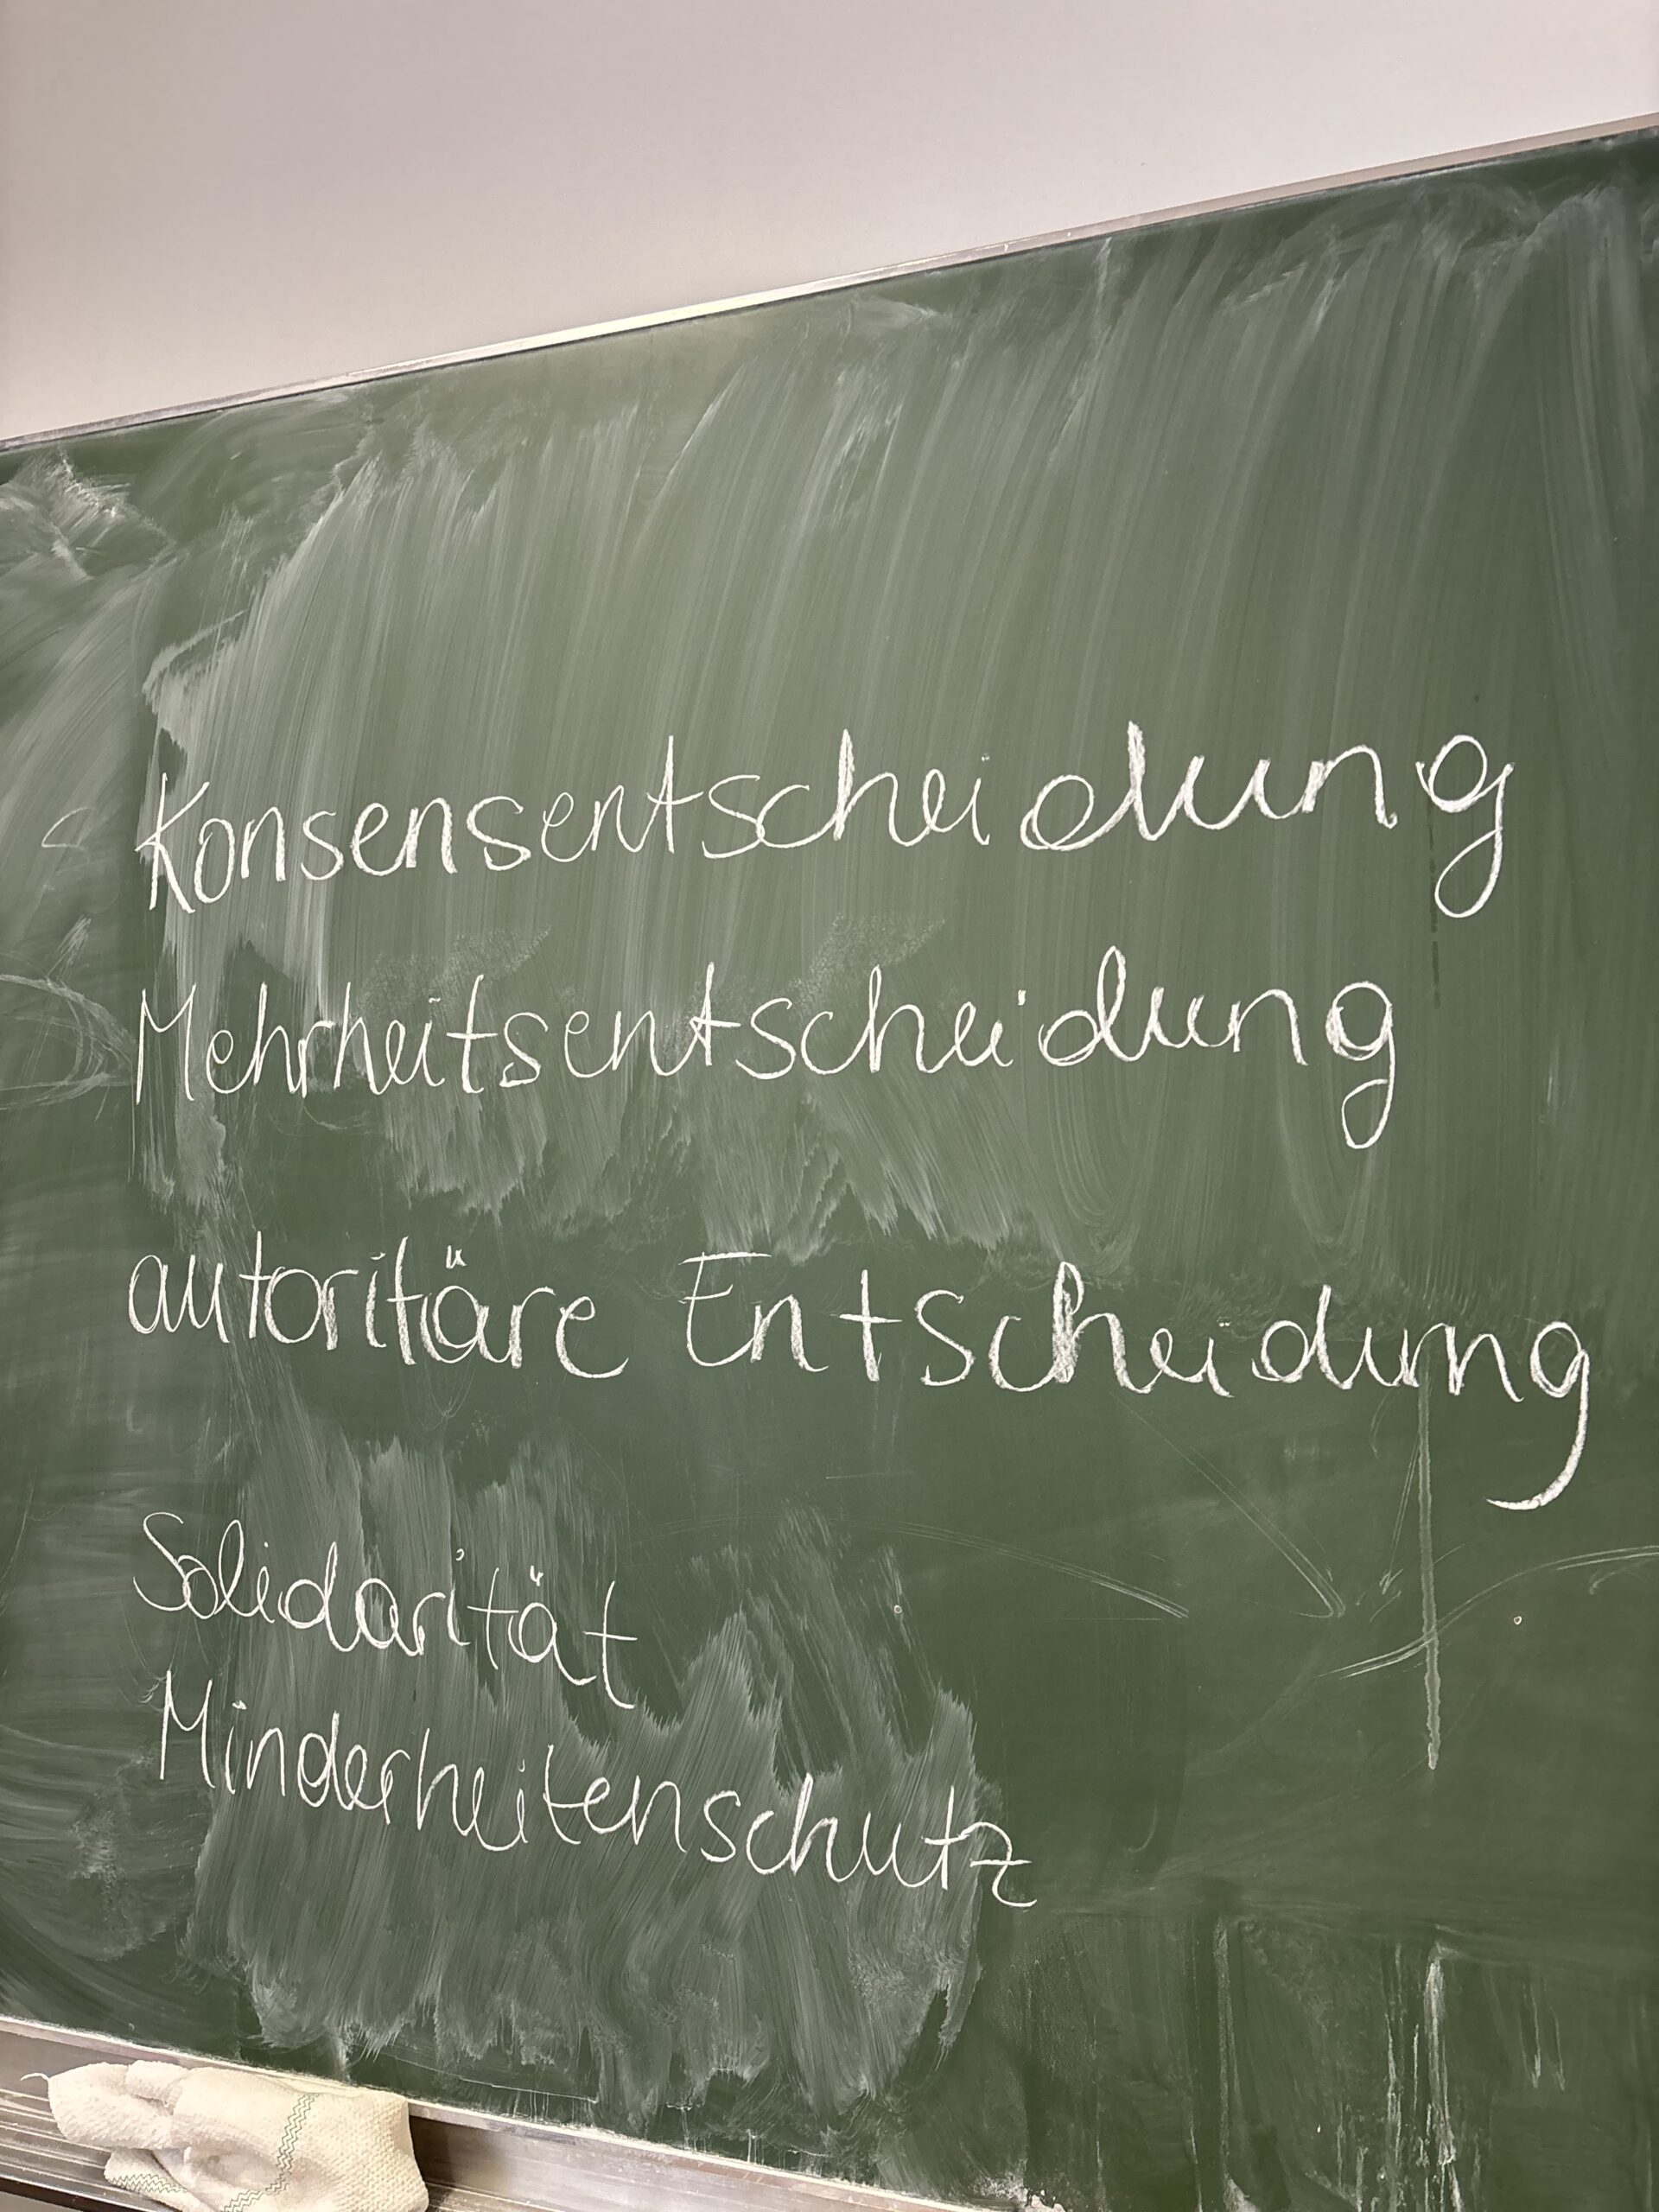 Konsensentscheidung
Mehrheitsentscheidung
autoritäre Entscheidung
Solidarität
Minderheitenschutz